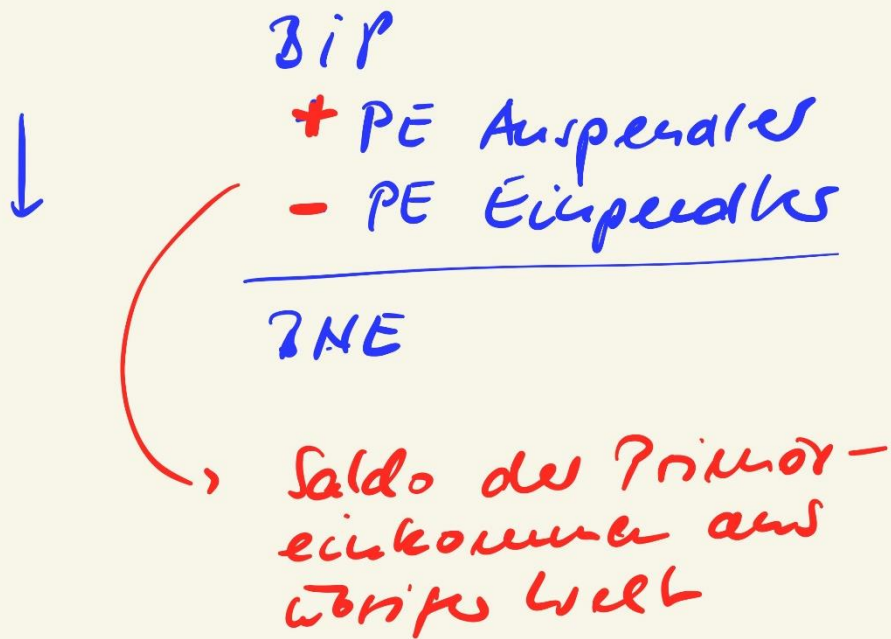 BiP
+ PE Auspendler
- PE Einpendler
BNE
Saldo der Primär-
einkommen aus
übriger Welt